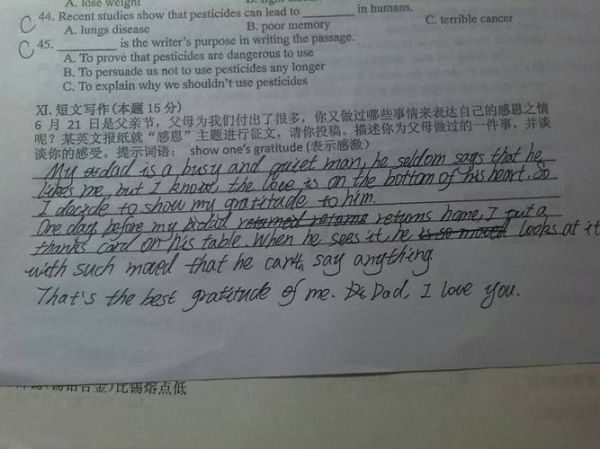 A. lose weight
44. Recent studies show that pesticides can lead to ________ in humans.
A. lungs disease B. poor memory C. terrible cancer
C
45. ________ is the writer's purpose in writing the passage.
C
A. To prove that pesticides are dangerous to use
B. To persuade us not to use pesticides any longer
C. To explain why we shouldn't use pesticides
XI. 短文写作(本题 15 分)
6 月 21 日是父亲节,父母为我们付出了很多,你又做过哪些事情来表达自己的感恩之情
呢?某英文报纸就“感恩”主题进行征文,请你投稿。描述你为父母做过的一件事,并谈
谈你的感受。提示词语: show one's gratitude (表示感激)
My dad is a busy and quiet man, he seldom says that he
likes me, but I know the love is on the bottom of his heart. So
I decide to show my gratitude to him.
One day before my dad returned returns returns home, I put a
thanks card on his table. When he sees it, he is so moved looks at it
with such moved that he can't say anything
That's the best gratitude of me. Dad, I love you.
比锡熔点低